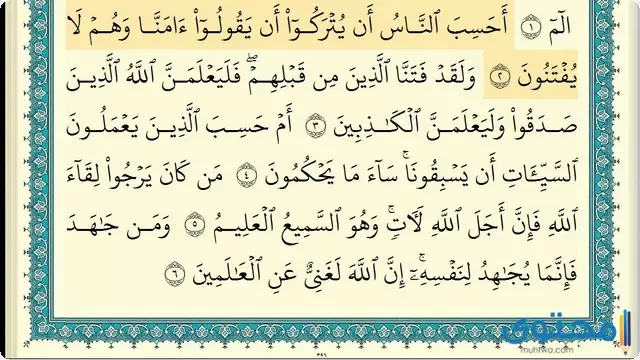 الٓمٓ ١ أَحَسِبَ ٱلنَّاسُ أَن يُتْرَكُوٓا۟ أَن يَقُولُوٓا۟ ءَامَنَّا وَهُمْ لَا
يُفْتَنُونَ ٢ وَلَقَدْ فَتَنَّا ٱلَّذِينَ مِن قَبْلِهِمْ ۖ فَلَيَعْلَمَنَّ ٱللَّهُ ٱلَّذِينَ
صَدَقُوا۟ وَلَيَعْلَمَنَّ ٱلْكَـٰذِبِينَ ٣ أَمْ حَسِبَ ٱلَّذِينَ يَعْمَلُونَ
ٱلسَّيِّـَٔاتِ أَن يَسْبِقُونَا ۚ سَآءَ مَا يَحْكُمُونَ ٤ مَن كَانَ يَرْجُوا۟ لِقَآءَ
ٱللَّهِ فَإِنَّ أَجَلَ ٱللَّهِ لَـَٔاتٍ ۚ وَهُوَ ٱلسَّمِيعُ ٱلْعَلِيمُ ٥ وَمَن جَـٰهَدَ
فَإِنَّمَا يُجَـٰهِدُ لِنَفْسِهِۦٓ ۚ إِنَّ ٱللَّهَ لَغَنِىٌّ عَنِ ٱلْعَـٰلَمِينَ ٦
محتوى
muhtwa.com
٣٩٦